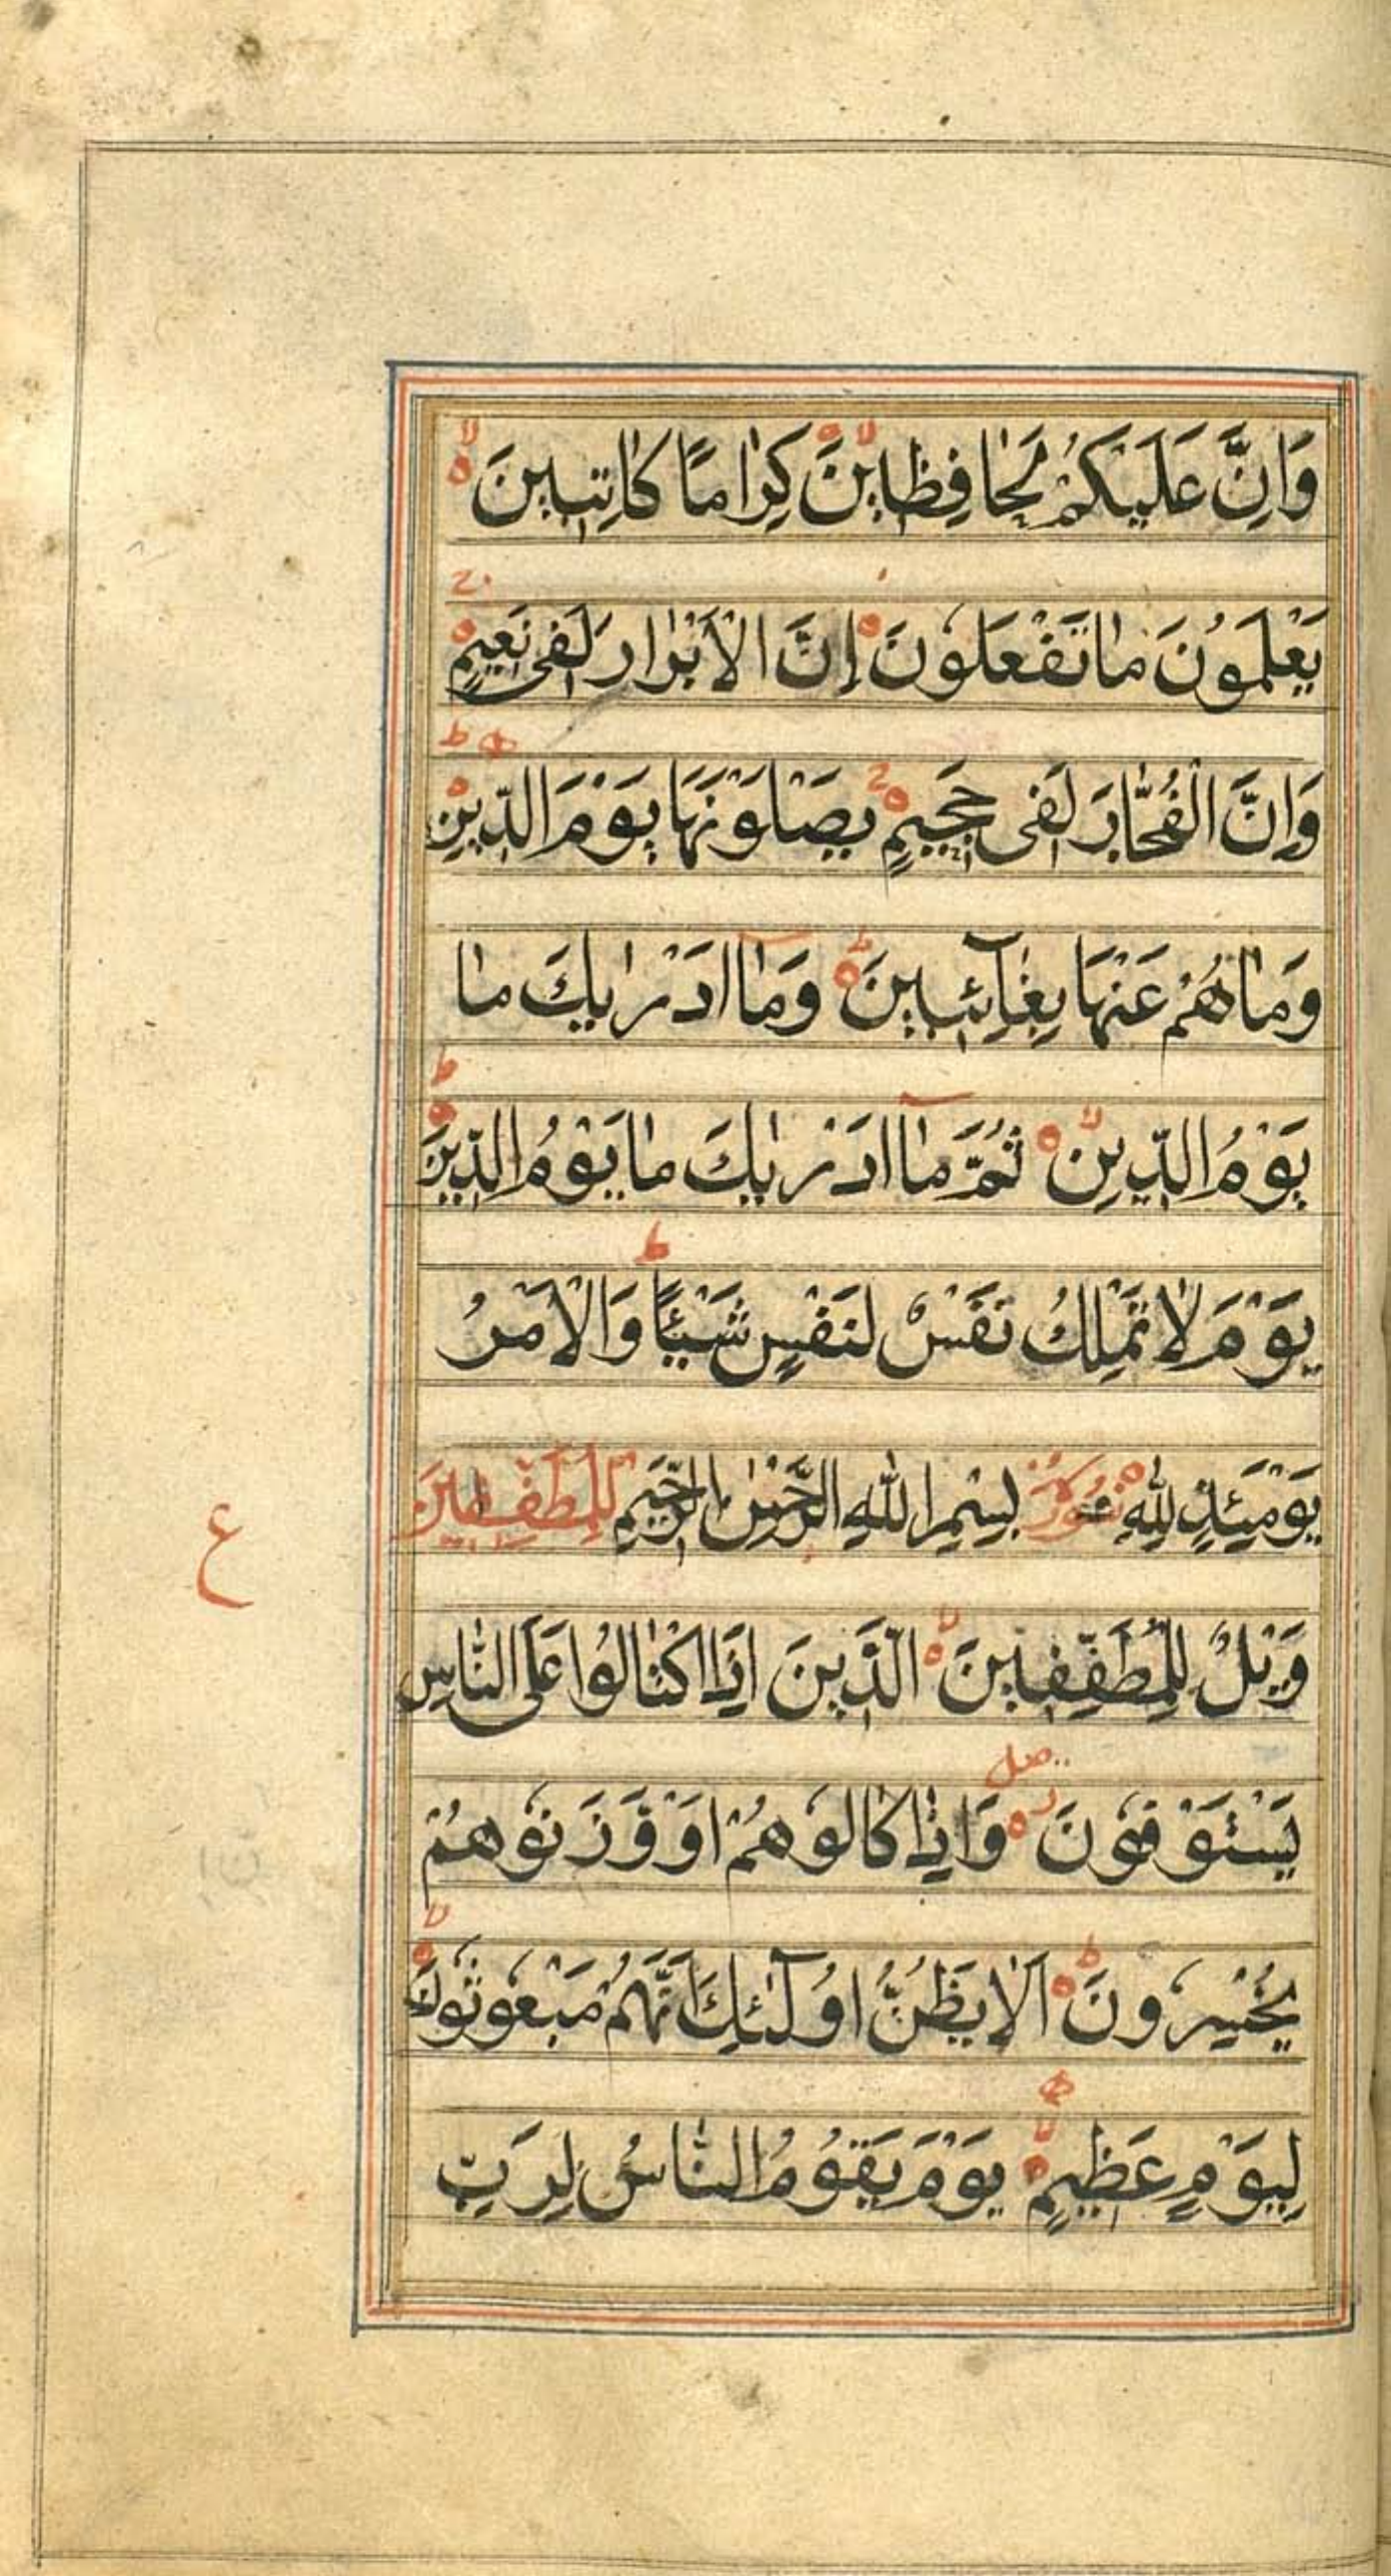 وَاِنَّ عَلَيْكُمْ لَحٰافِظٖينَ كِرٰامًا كٰاتِبٖينَ
يَعْلَمُونَ مٰا تَفْعَلُونَ اِنَّ الْاَبْرٰارَ لَفٖى نَعٖيمٍ
وَاِنَّ الْفُجّٰارَ لَفٖى جَحٖيمٍ يَصْلَوْنَهٰا يَوْمَ الدّٖينِ
وَمٰا هُمْ عَنْهٰا بِغٰآئِبٖينَ وَمٰآ اَدْرٰيكَ مٰا
يَوْمُ الدّٖينِ ثُمَّ مٰآ اَدْرٰيكَ مٰا يَوْمُ الدّٖينِ
يَوْمَ لٰا تَمْلِكُ نَفْسٌ لِنَفْسٍ شَيْئًا وَالْاَمْرُ
يَوْمَئِذٍ لِلّٰهِ سُورَةُ بِسْمِ اللّٰهِ الرَّحْمٰنِ الرَّحٖيمِ الْمُطَفِّفٖينَ
وَيْلٌ لِلْمُطَفِّفٖينَ الَّذٖينَ اِذَا اكْتٰالُوا عَلَى النّٰاسِ
يَسْتَوْفُونَ وَاِذٰا كٰالُوهُمْ اَوْ وَزَنُوهُمْ
يُخْسِرُونَ اَلٰا يَظُنُّ اُولٰٓئِكَ اَنَّهُمْ مَبْعُوثُونَ
لِيَوْمٍ عَظٖيمٍ يَوْمَ يَقُومُ النّٰاسُ لِرَبِّ
ع